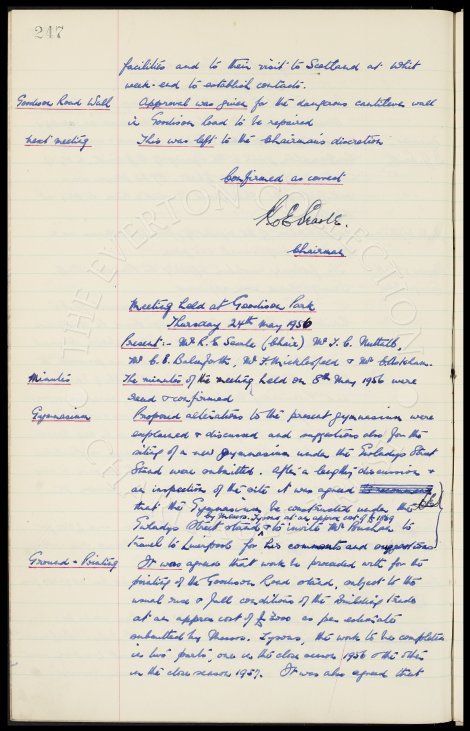 247
facilities and to their visit to Scotland at Whit
week-end to establish contacts.
Goodison Road Wall Approval was given for the dangerous cantilever wall
in Goodison Road to be repaired
next meeting This was left to the Chairman's discretion
Confirmed as correct
R E Searle.
Chairman
Meeting held at Goodison Park
Thursday 24th May 1956
Present:- Mr R. E. Searle (Chair) Mr F. C. Nuttall,
Mr C. E. Balmforth, Mr F. Micklesfield & Mr E. Holt
Minutes The minutes of the meeting held on 8th May 1956 were
read & confirmed
Gymnasium Proposed alterations to the present gymnasium were
explained & discussed and suggestions also for the
siting of a new gymnasium under the Gwladys Street
Stand were submitted. After a lengthy discussion &
an inspection of the site it was agreed
that the Gymnasium be constructed under the
by Messrs. Tysons at an approx cost of £
Gwladys Street stand & to invite Mr Buchan to
travel to Liverpool for his comments and suggestions
Ground & Painting It was agreed that work be proceded with for the
painting of the Goodison Road stand, subject to the
usual rise & fall conditions of the Building trade
at an approx cost of £ 2000 as per estimate
submitted by Messrs. Tysons, the work to be completed
in two parts, one in the close season 1956 & the other
in the close season 1957. It was also agreed that
THE EVERTON COLLECTION CH